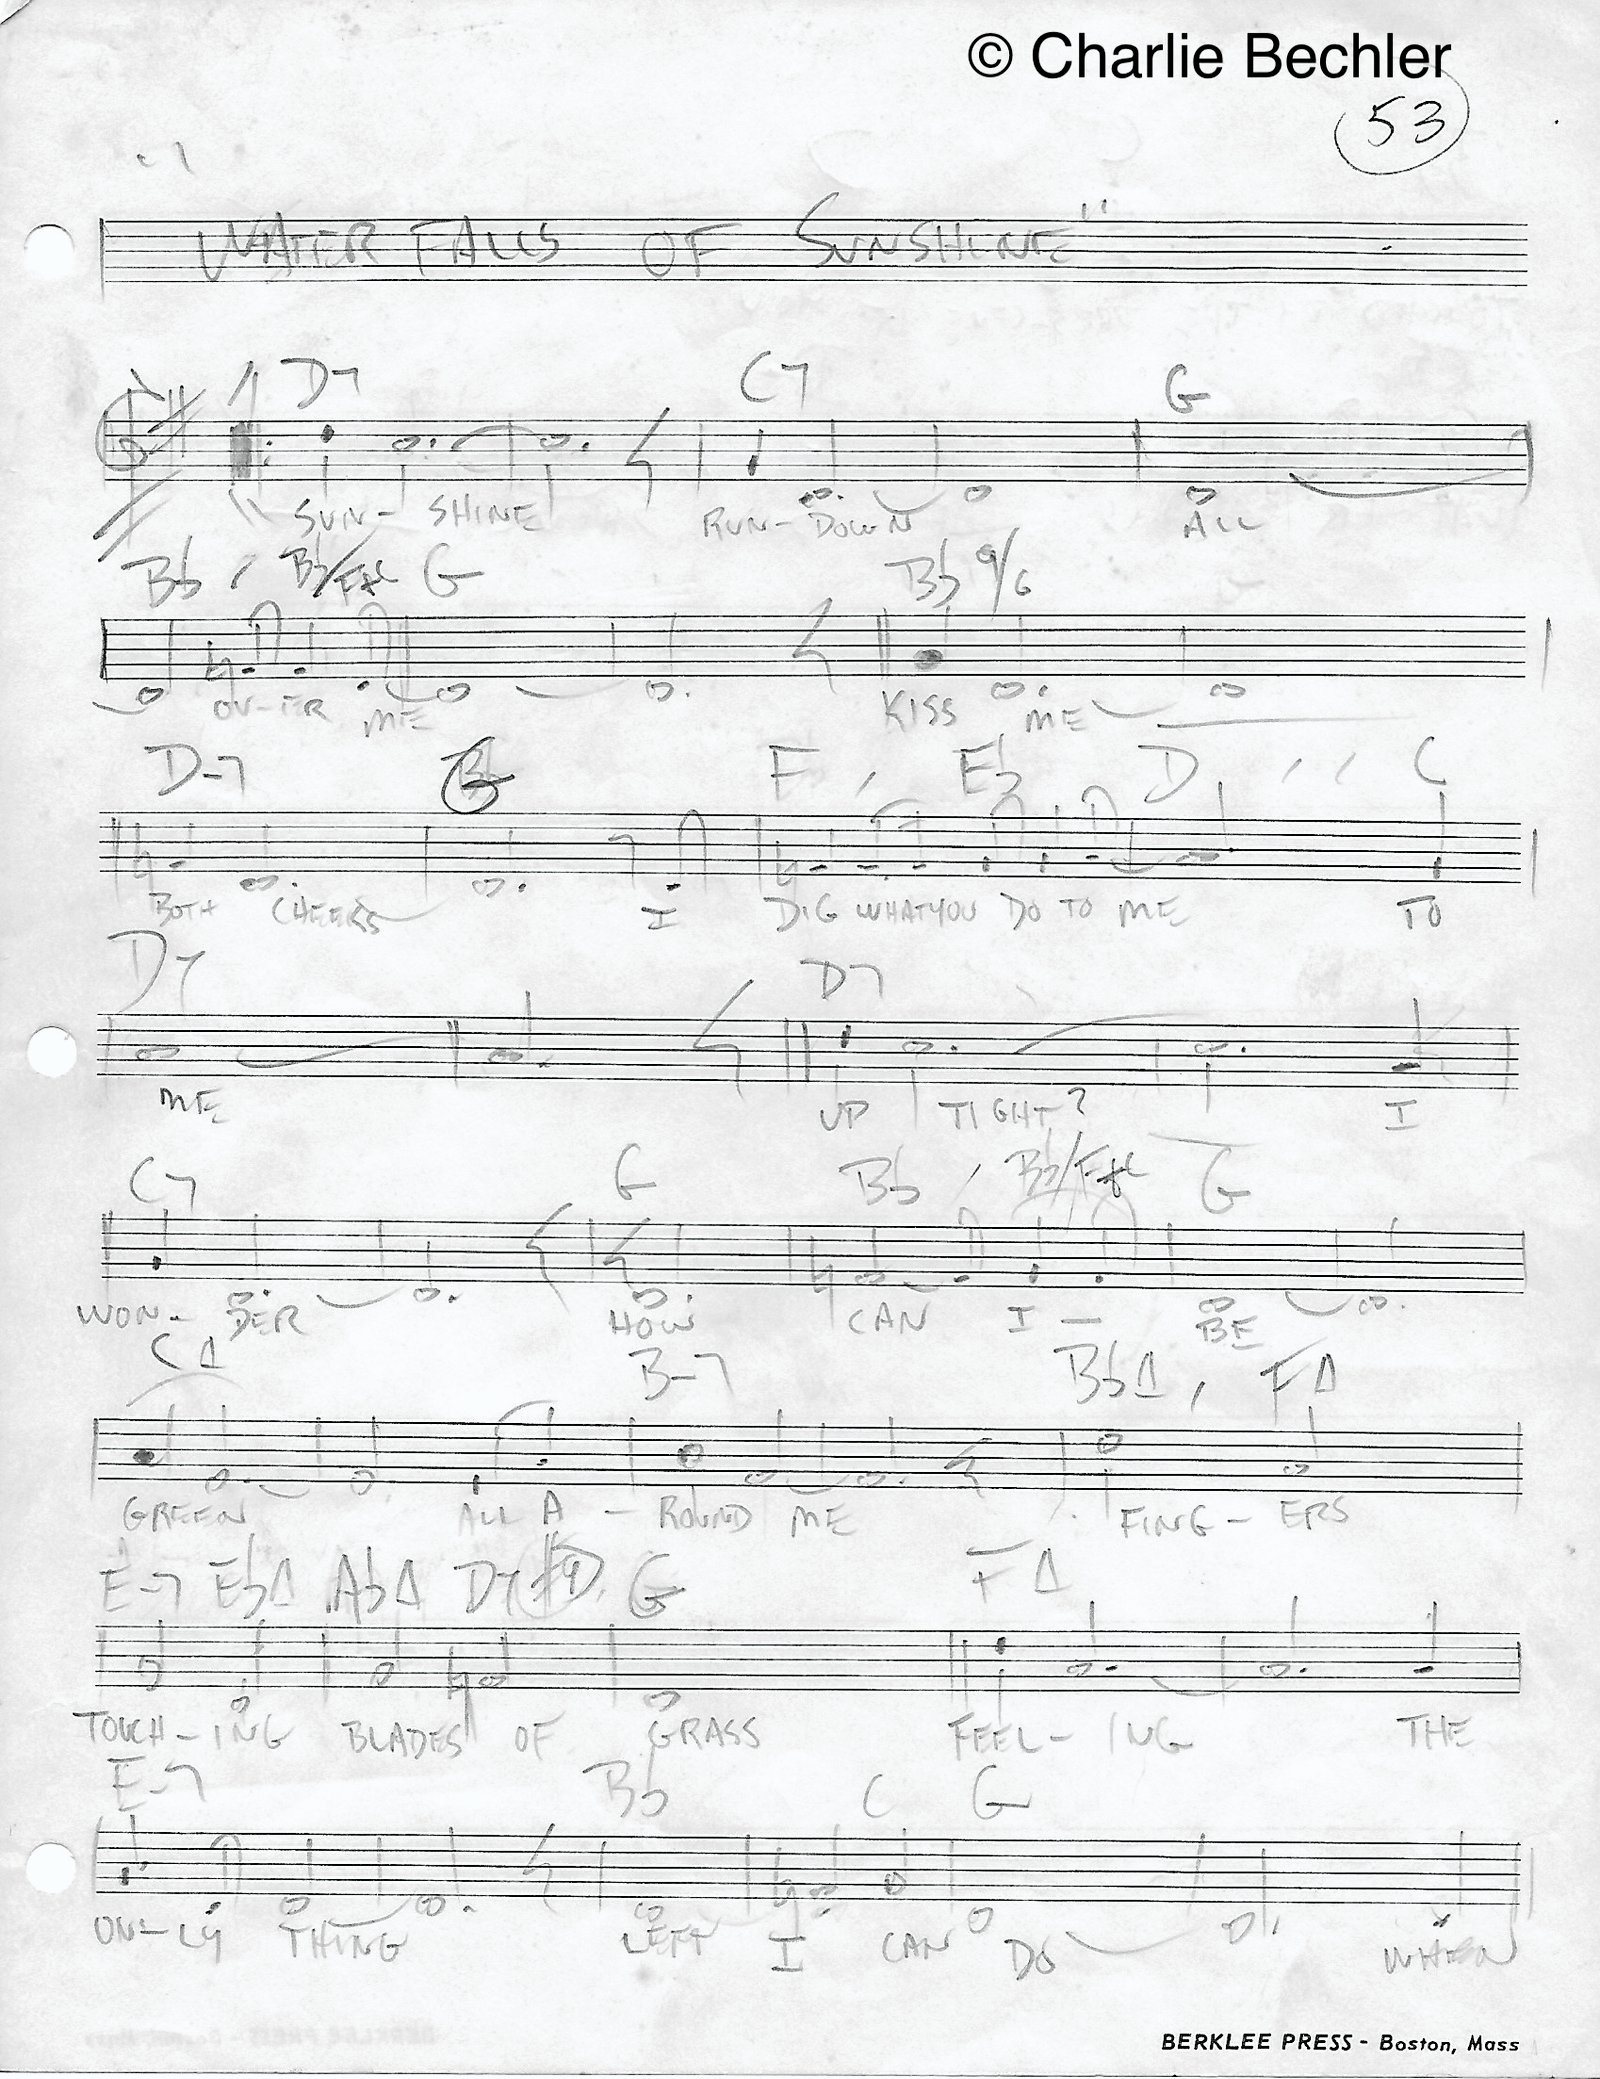 © Charlie Bechler
53
WATER FALLS OF SUNSHINE"
D7 C7 G
SUN- SHINE RUN- DOWN ALL
Bb / Bb/F G Bb 9/6
OV-ER ME KISS ME
D-7 F / Eb D / / C
BOTH CHEEKS I DIG WHAT YOU DO TO ME TO
D7 D7
ME UP TIGHT? I
C7 G Bb / Bb/F G
WON- DER HOW CAN I — BE
CΔ B-7 BbΔ / FΔ
GREEN ALL A - ROUND ME FING- ERS
E-7 EbΔ AbΔ D7 G FΔ
TOUCH-ING BLADES OF GRASS FEEL- ING THE
E-7 Bb C G
ON-LY THING LEFT I CAN DO WHEN
BERKLEE PRESS - Boston, Mass